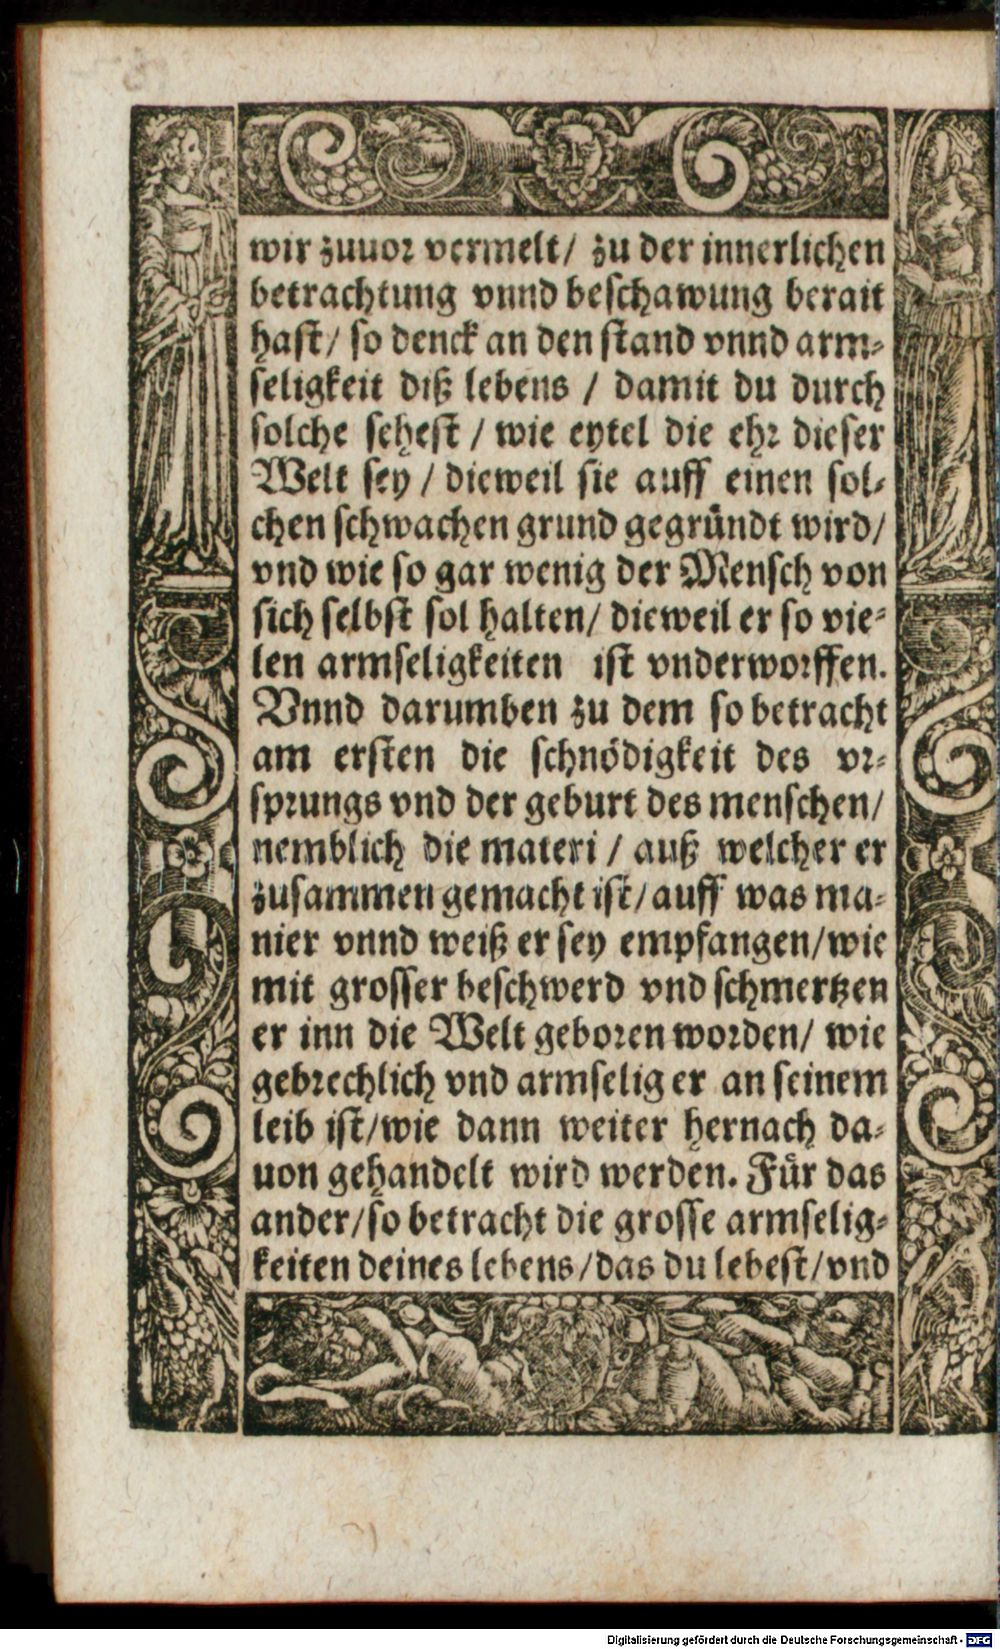 wir zuuor vermelt/ zu der innerlichen
betrachtung vnnd beschawung berait
hast/ so denck an den stand vnnd arm-
seligkeit diß lebens / damit du durch
solche sehest / wie eytel die ehr dieser
Welt sey / dieweil sie auff einen sol-
chen schwachen grund gegründt wird/
vnd wie so gar wenig der Mensch von
sich selbst sol halten/ dieweil er so vie-
len armseligkeiten ist vnderworffen.
Vnnd darumben zu dem so betracht
am ersten die schnödigkeit des vr-
sprungs vnd der geburt des menschen/
nemblich die materi / auß welcher er
zusammen gemacht ist/ auff was ma-
nier vnnd weiß er sey empfangen/wie
mit grosser beschwerd vnd schmertzen
er inn die Welt geboren worden/ wie
gebrechlich vnd armselig er an seinem
leib ist/wie dann weiter hernach da-
uon gehandelt wird werden. Für das
ander/so betracht die grosse armselig-
keiten deines lebens/das du lebest/vnd
Digitalisierung gefördert durch die Deutsche Forschungsgemeinschaft - DFG